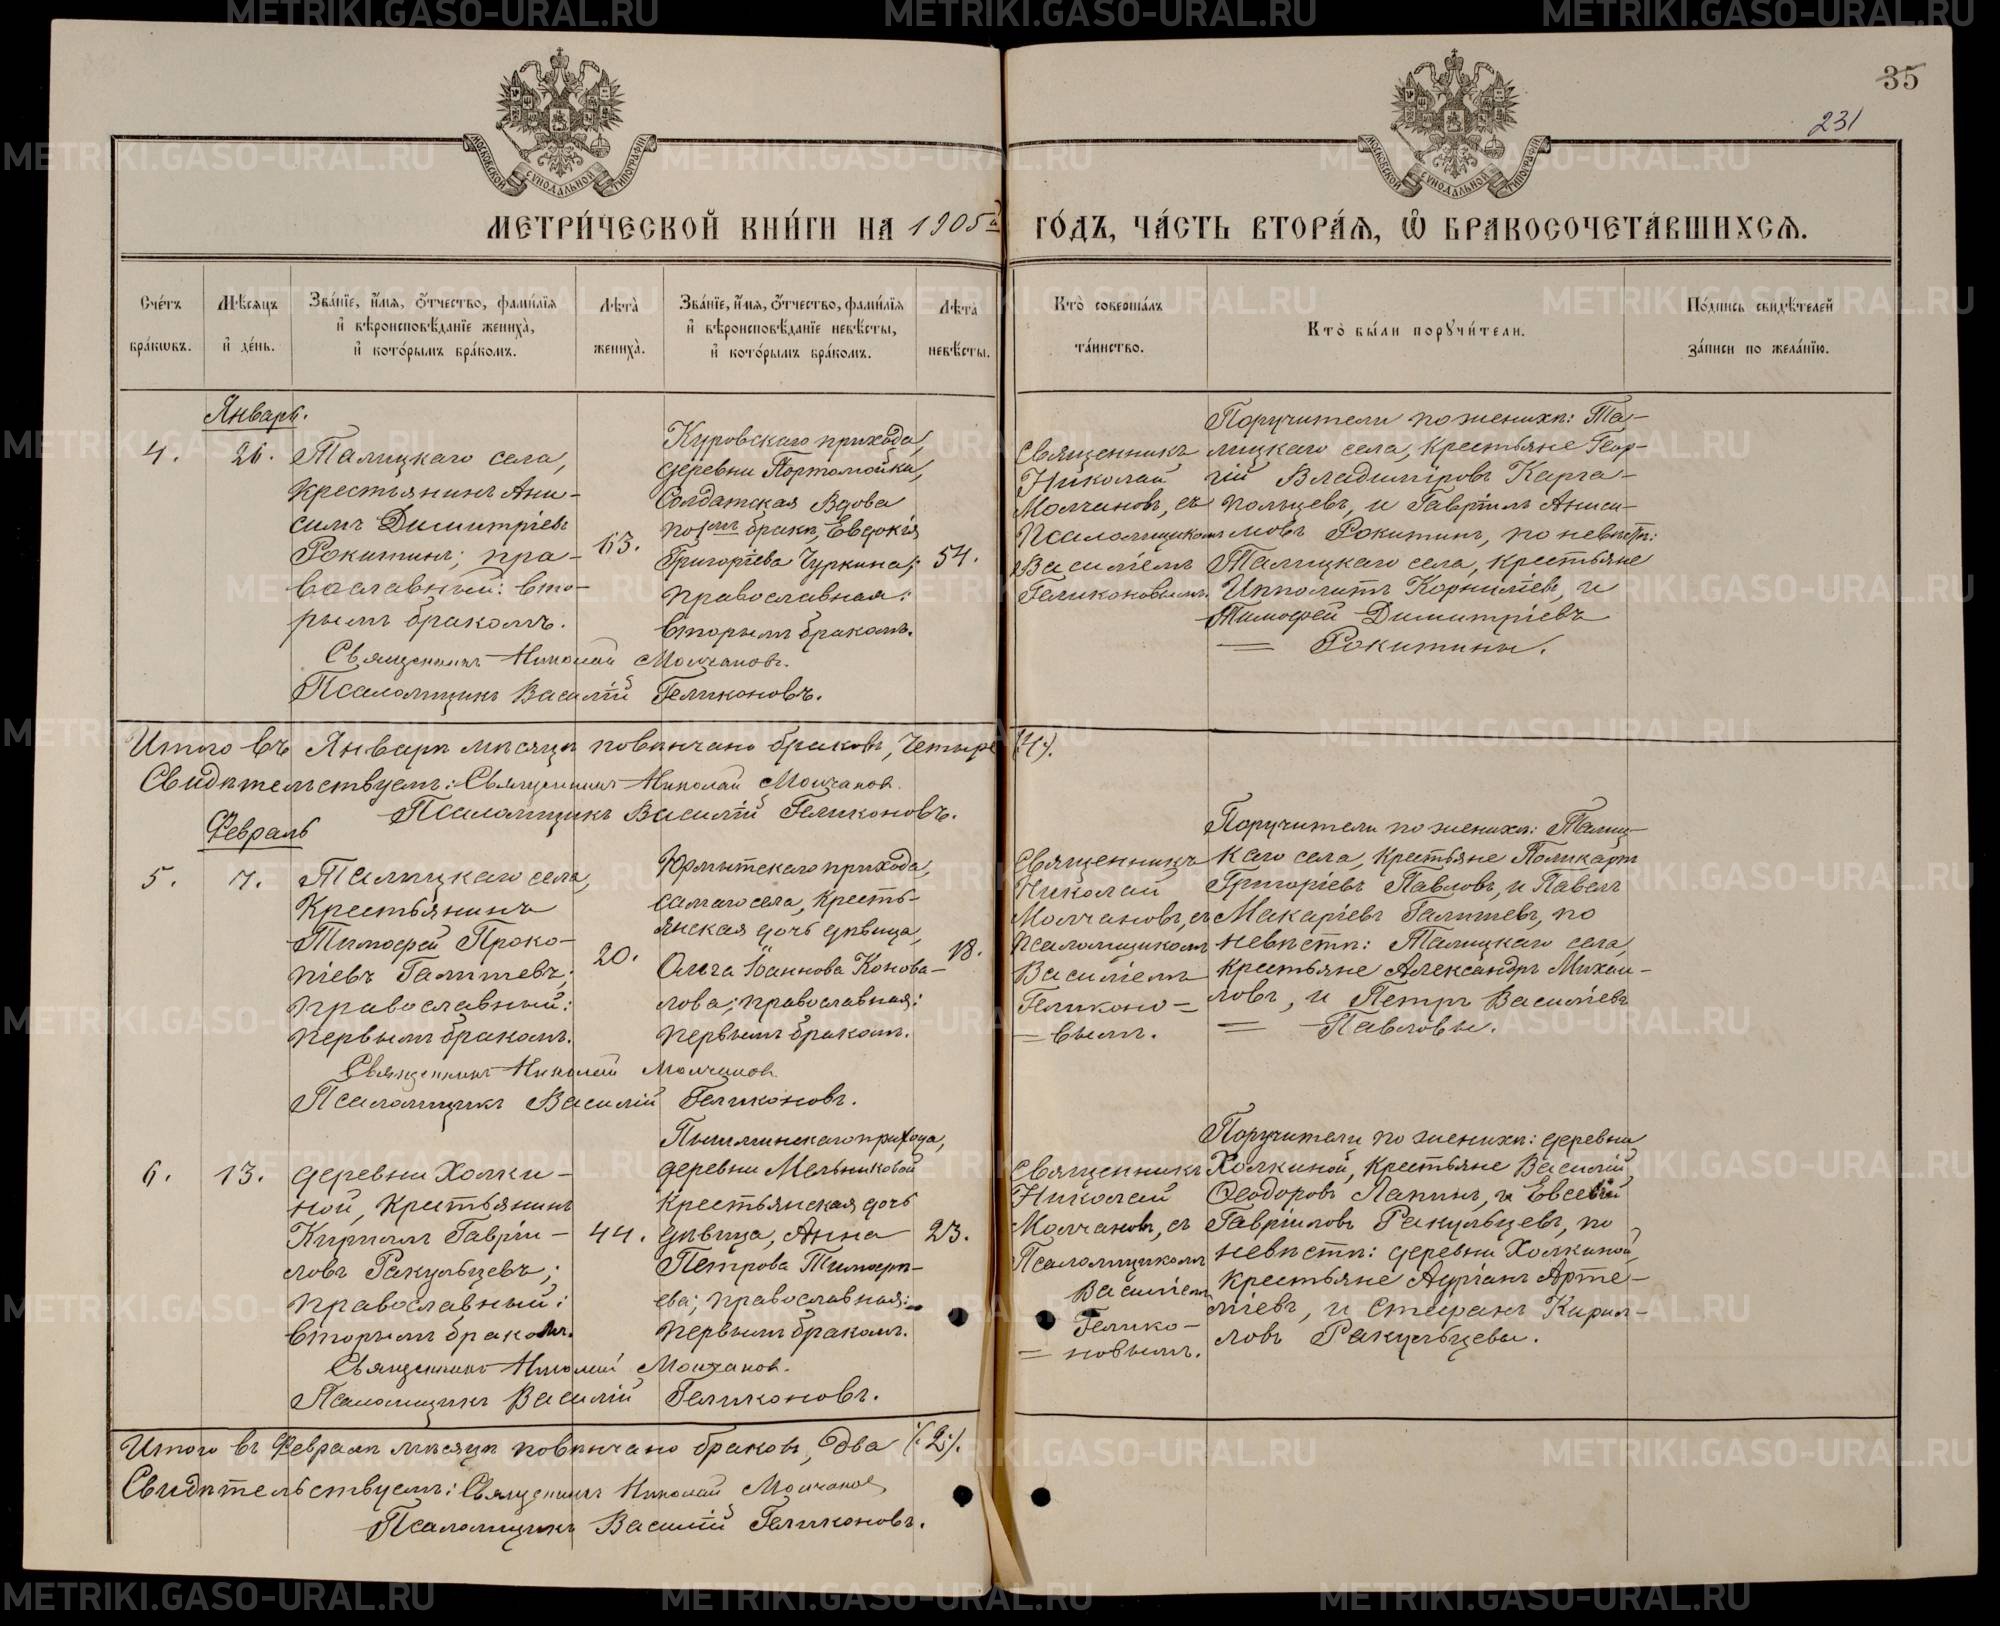 35
231
МОСКОВСКОЙ СѴНОДАЛЬНОЙ ТИПОГРАФІИ
МОСКОВСКОЙ СѴНОДАЛЬНОЙ ТИПОГРАФІИ
МЕТРИ́ЧЕСКОЙ КНИ́ГИ НА 1905й ГО́ДЪ, ЧА́СТЬ ВТОРА́Ѧ, Ѽ БРАКОСОЧЕТА́ВШИХСѦ.
Сче́тъ бра́кѡвъ.
Мѣ́сѧцъ и҆ де́нь.
Зва́нїе, и҆́мѧ, ѻ҆́тчество, фами́лїѧ
и҆ вѣроисповѣ́данїе жениха̀,
и҆ кото́рымъ бра́комъ.
Лѣта̀ жениха̀.
Зва́нїе, и҆́мѧ, ѻ҆́тчество, фами́лїѧ
и҆ вѣроисповѣ́данїе невѣ́сты,
и҆ кото́рымъ бра́комъ.
Лѣта̀ невѣ́сты.
Кто̀ соверша́лъ
та́инство.
Кто̀ бы́ли порꙋчи́тели.
По́дпись свидѣ́телей
за́писи по жела́нїю.
Январь.
4.
26.
Талицкаго села,
крестьянинъ Ани-
симъ Димитріевъ
Рокитинъ; пра-
вославный: вто-
рымъ бракомъ.
63.
Куровскаго прихода,
деревни Портомойки,
Солдатская вдова
по 1мъ бракѣ, Евдокія
Григоріева Чуркина;
православная:
вторымъ бракомъ.
54.
Священникъ
Николай
Молчановъ, съ
Псаломщикомъ
Василіемъ
Геликоновымъ.
Поручители по женихѣ: Та-
лицкаго села, крестьяне Геор-
гій Владиміровъ Карга-
польцевъ, и Гавріилъ Аниси-
мовъ Рокитинъ, по невѣстѣ:
Талицкаго села, крестьяне
Ипполитъ Корниліевъ, и
Тимофей Димитріевъ
= Рокитины.
Священникъ Николай Молчановъ.
Псаломщикъ Василій Геликоновъ.
Итого въ Январѣ мѣсяцѣ повѣнчано браковъ, четыре (4).
Свидѣтельствуемъ: Священникъ Николай Молчановъ.
Псаломщикъ Василій Геликоновъ.
Февраль
5.
7.
Талицкаго села,
крестьянинъ
Тимофей Проко-
піевъ Галишевъ;
православный:
первымъ бракомъ.
20.
Юрмытскаго прихода,
самаго села, кресть-
янская дочь дѣвица,
Ольга Іоаннова Конова-
лова; православная:
первымъ бракомъ.
18.
Священникъ
Николай
Молчановъ, съ
псаломщикомъ
Василіемъ
Геликоно-
= вымъ.
Поручители по женихѣ: Талиц-
каго села, крестьяне Поликарпъ
Григоріевъ Павловъ, и Павелъ
Макаріевъ Галишевъ, по
невѣстѣ: Талицкаго села,
крестьяне Александръ Михаи-
ловъ, и Петръ Василіевъ
= Павловы.
Священникъ Николай Молчановъ.
Псаломщикъ Василій Геликоновъ.
6.
13.
деревни Холки-
ной, крестьянинъ
Кириллъ Гавріи-
ловъ Ракульцевъ;
православный:
вторымъ бракомъ.
44.
Пышминскаго прихода,
деревни Мельниковой
крестьянская дочь
дѣвица, Анна
Петрова Тимофѣ-
ева; православная:
первымъ бракомъ.
23.
Священникъ
Николай
Молчановъ, съ
Псаломщикомъ
Василіемъ
Гелико-
= новымъ.
Поручители по женихѣ: деревни
Холкиной, крестьяне Василій
Ѳеодоровъ Лапинъ, и Евсевій
Гавріиловъ Ракульцевъ, по
невѣстѣ: деревни Холкиной,
крестьяне Адріанъ Арте-
міевъ, и Стефанъ Кирил-
ловъ Ракульцевы.
Священникъ Николай Молчановъ.
Псаломщикъ Василій Геликоновъ.
Итого въ Февралѣ мѣсяцѣ повѣнчано браковъ, два (2).
Свидѣтельствуемъ: Священникъ Николай Молчановъ
Псаломщикъ Василій Геликоновъ.
METRIKI.GASO-URAL.RU